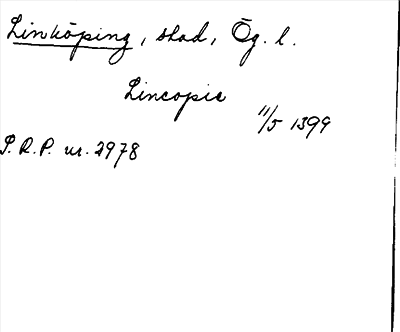 Linköping, stad, Ög. l.
Lincopie
11/5 1399
S.R.P. nr. 2978